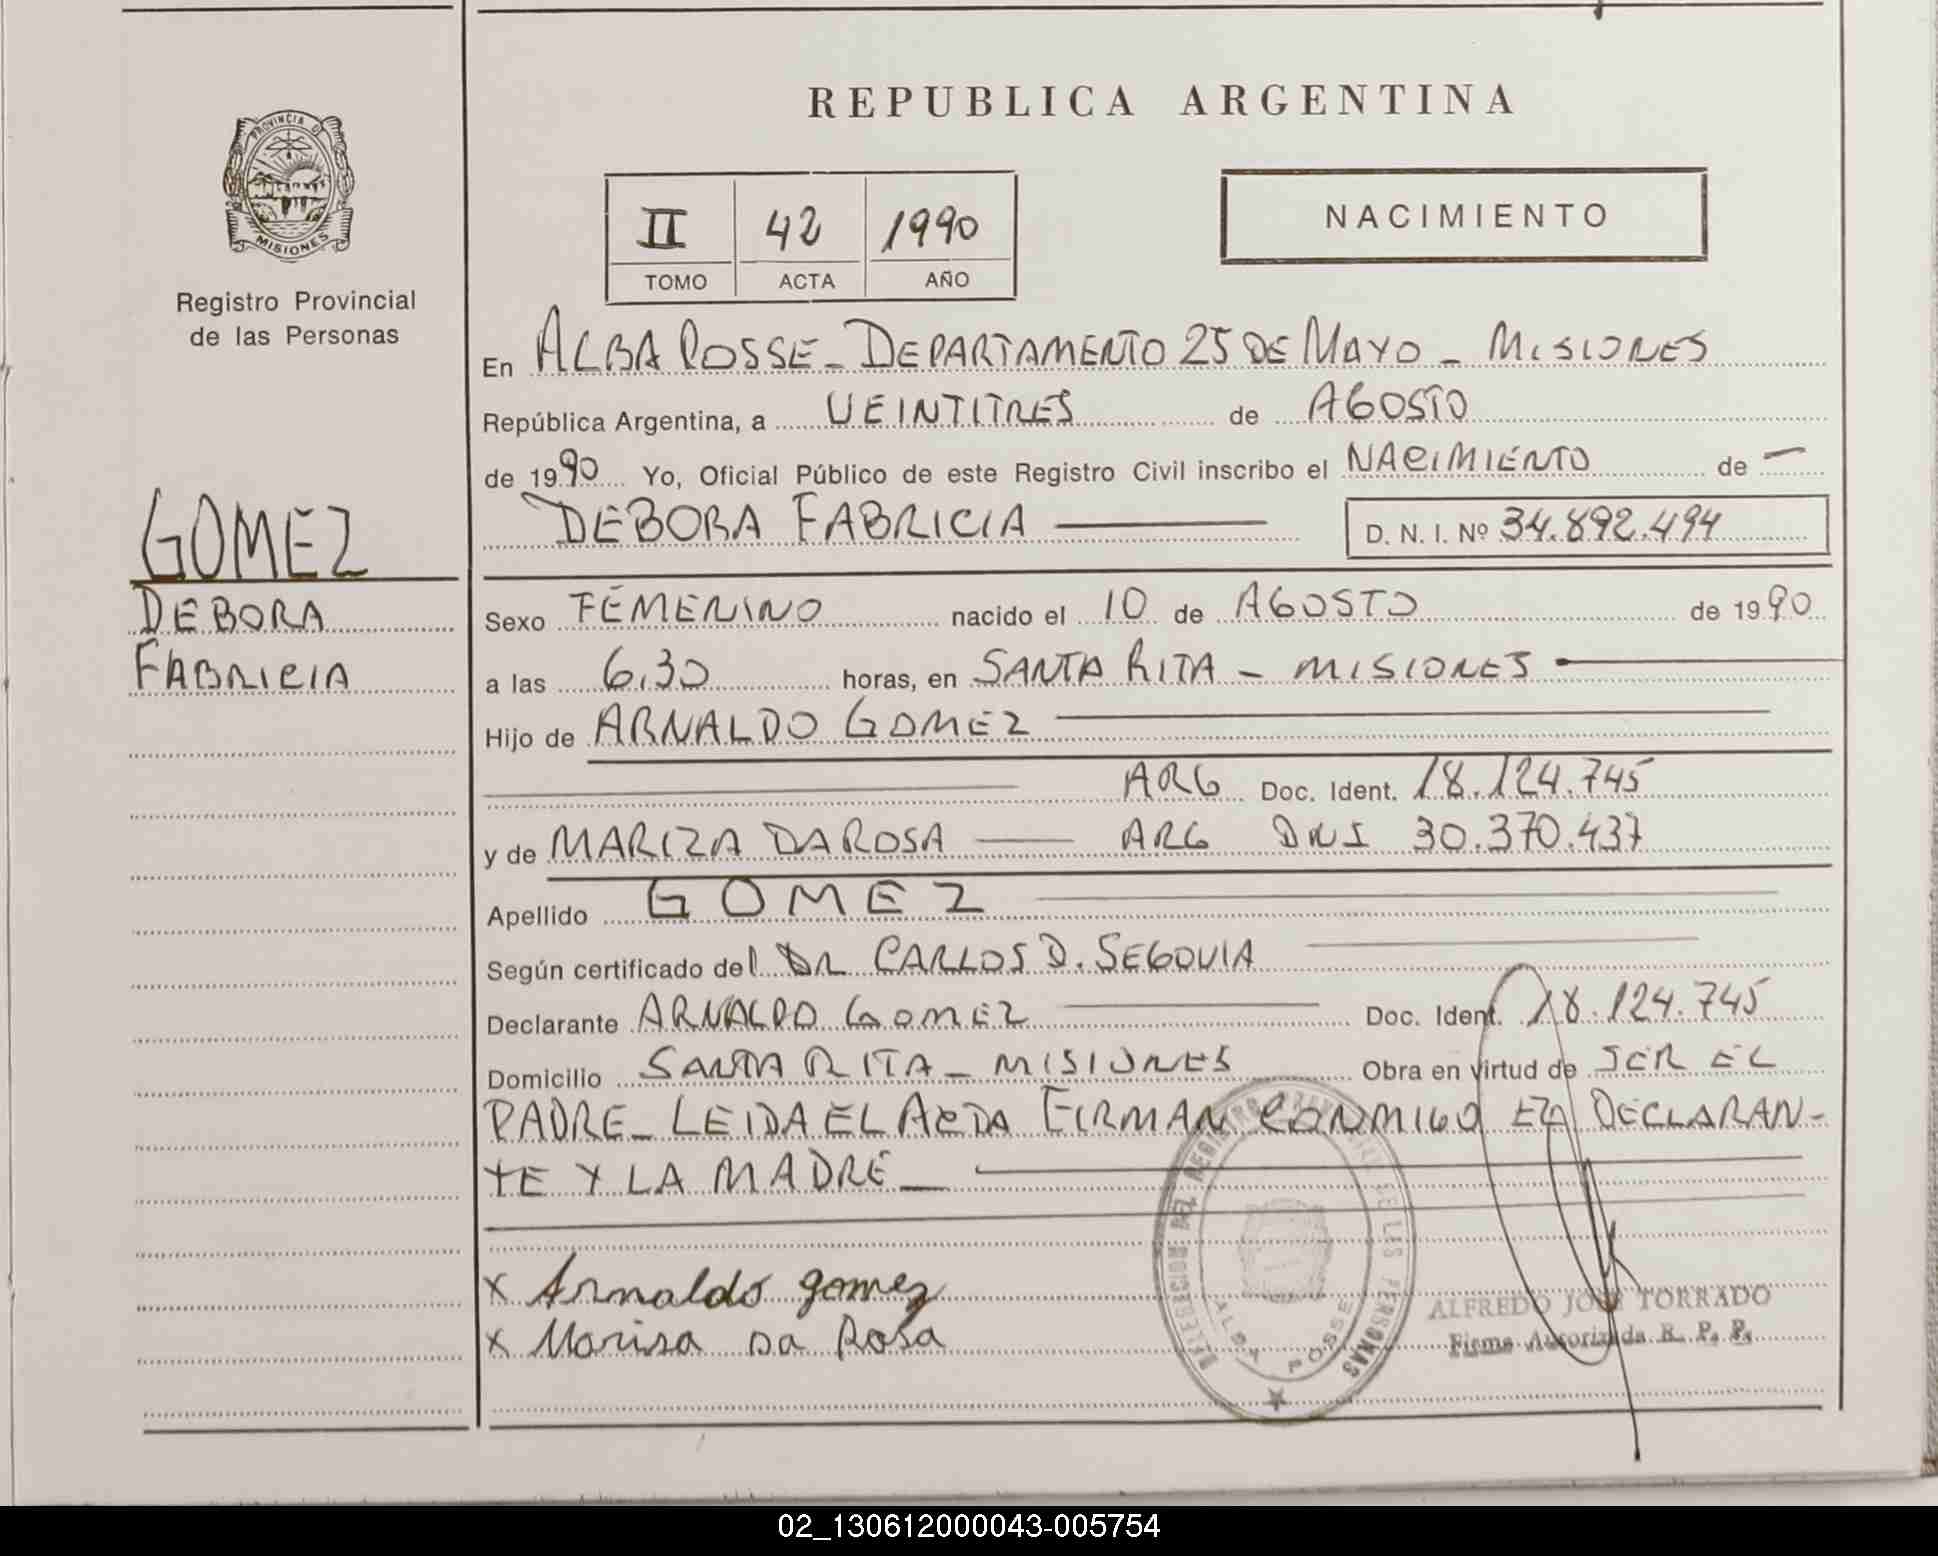 PROVINCIA D
MISIONES
Registro Provincial
de las Personas
GOMEZ
DEBORA
FABRICIA
REPUBLICA ARGENTINA
II 42 1990
TOMO ACTA AÑO
NACIMIENTO
En ALBA POSSE - DEPARTAMENTO 25 DE MAYO - MISIONES
República Argentina, a VEINTITRES de AGOSTO
de 1990 Yo, Oficial Público de este Registro Civil inscribo el NACIMIENTO de —
DEBORA FABRICIA — D. N. I. Nº 34.892.494
Sexo FEMENINO nacido el 10 de AGOSTO de 1990
a las 6,30 horas, en SANTA RITA - MISIONES —
Hijo de ARNALDO GOMEZ —
— ARG Doc. Ident. 18.124.745
y de MARIZA DA ROSA — ARG DNI 30.370.437
Apellido GOMEZ —
Según certificado del DR CARLOS D. SEGOVIA —
Declarante ARNALDO GOMEZ — Doc. Ident. 18.124.745
Domicilio SANTA RITA - MISIONES Obra en virtud de SER EL
PADRE - LEIDA EL ACTA FIRMAN CONMIGO EL DECLARAN-
TE Y LA MADRE —
x Arnaldo gomez
x Marisa Da Rosa
DIRECCION DEL REGISTRO PROVINCIAL DE LAS PERSONAS
ALBA POSSE
ALFREDO JOSE TORRADO
Firma Autorizada R. P. P.
02_130612000043-005754